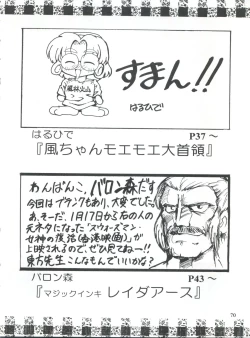 すまん!!
はるひで
風林火山
はるひで P37～
『風ちゃんモエモエ大首領』
わんぱんこ、バロン森だす
今回はブランクもあり、大変でした
あ、そーだ、1月17日から右の人の
元ネタになった"スウォーズマン
女神の復活(香港映画)"が
上映されるので、ぜひ見てねー!!
東方先生こんなもんでいいかな?
バロン森 P43～
『マジックインキ レイダアース』
70